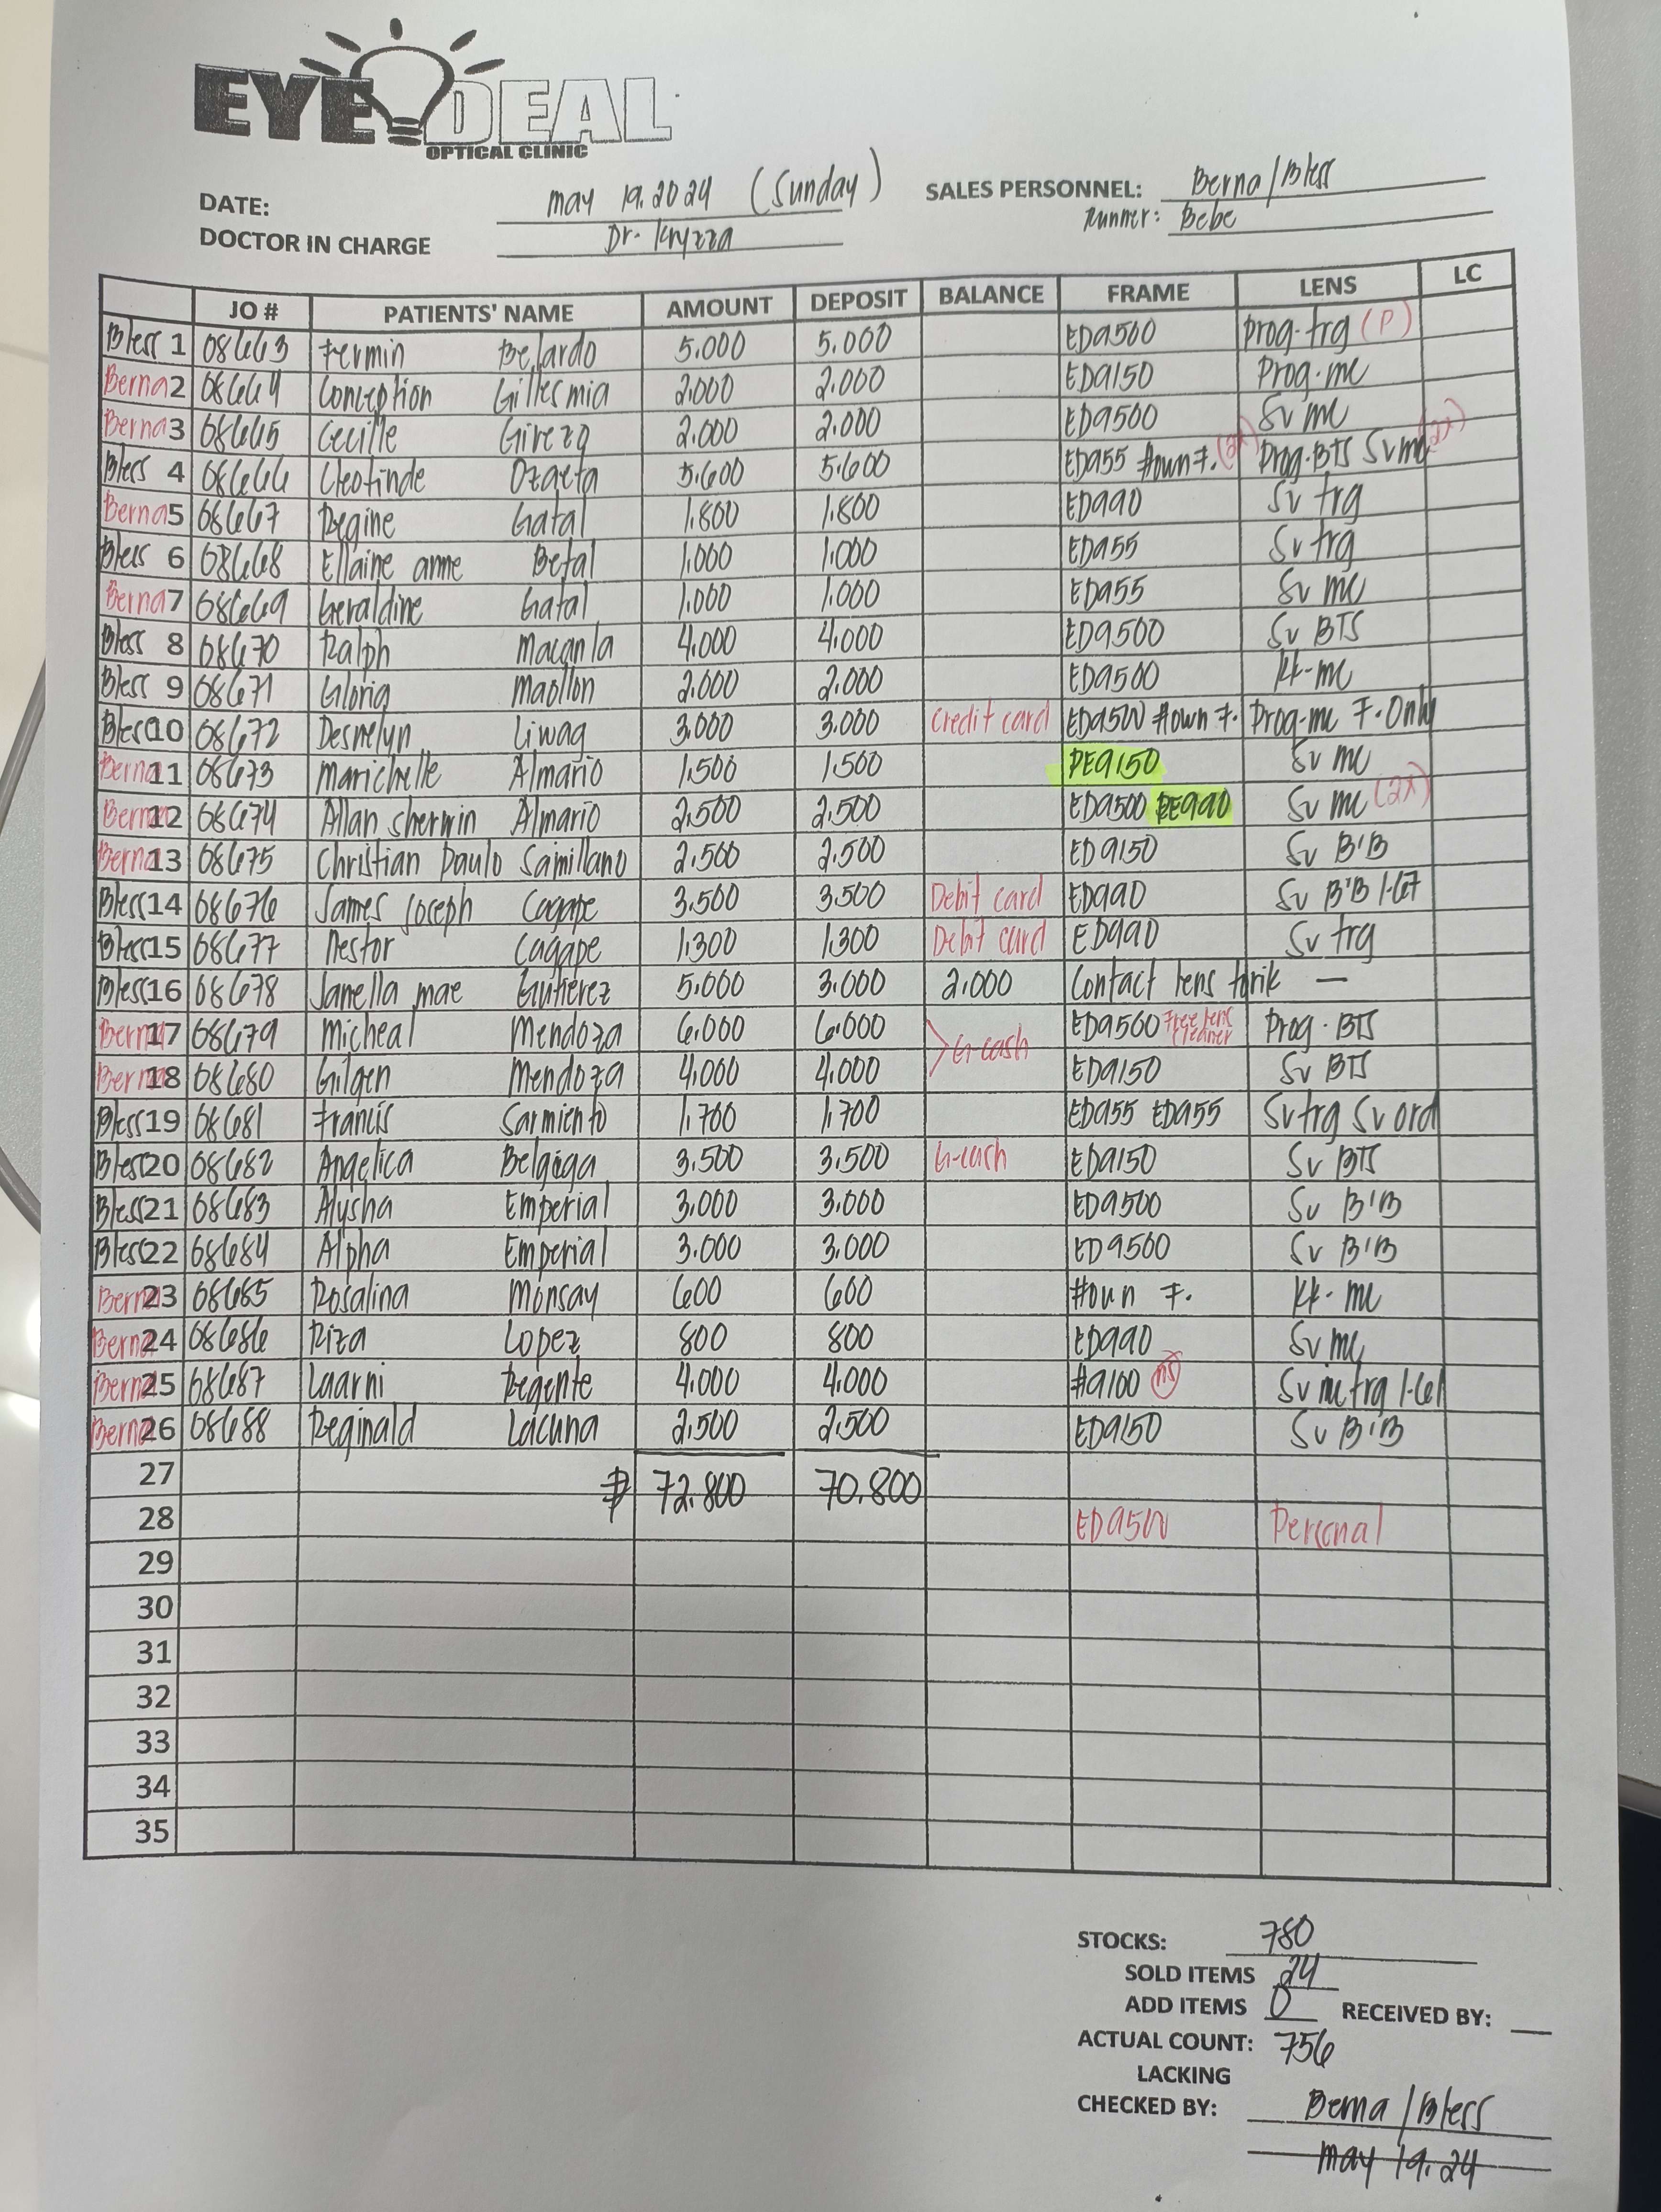 EYE DEAL
OPTICAL CLINIC
DATE: may 19.2024 (Sunday) SALES PERSONNEL: Berna/Bless
DOCTOR IN CHARGE Dr. Kryzza Runner: Bebe
JO # PATIENTS' NAME AMOUNT DEPOSIT BALANCE FRAME LENS LC
Bless 1 08663 Fermin Belardo 5.000 5.000 ED9500 prog-trg (P)
Berna 2 08664 Conception Gillesmia 2.000 2.000 ED9150 Prog-mc
Berna 3 08665 Cecille Givezq 2.000 2.000 ED9500 Sv mc
Bless 4 08666 Cleotinde Ozaeta 5.600 5.600 ED955 #own F. (2x) Prog-BTS Sv mc (2x)
Berna 5 08667 Regine Gatal 1.800 1.800 ED990 Sv trg
Bless 6 08668 Ellaine anne Betal 1.000 1.000 ED955 Sv trg
Berna 7 08669 Geraldine Gatal 1.000 1.000 ED955 Sv mc
Bless 8 08670 Ralph Macanla 4.000 4.000 ED9500 Sv BTS
Bless 9 08671 Gloria Maollon 2.000 2.000 ED9500 kk-mc
Bless 10 08672 Desnelyn Liwag 3.000 3.000 Credit card ED9500 #own F. Prog-mc F. Only
Berna 11 08673 Marichelle Almario 1.500 1.500 PE9150 Sv mc
Berna 12 08674 Allan sherwin Almario 2.500 2.500 ED9500 PE990 Sv mc (2x)
Berna 13 08675 Christian Paulo Samillano 2.500 2.500 ED9150 Sv B'B
Bless 14 08676 James Joseph Cagape 3.500 3.500 Debit card ED990 Sv B'B 1.67
Bless 15 08677 Nestor Cagape 1.300 1.300 Debit card ED990 Sv trg
Bless 16 08678 Janella mae Gutierez 5.000 3.000 2.000 Contact lens torik —
Berna 17 08679 Micheal Mendoza 6.000 6.000 G-cash ED9500 Free lens cleaner Prog-BTS
Berna 18 08680 Gilgen Mendoza 4.000 4.000 ED9150 Sv BTS
Bless 19 08681 Francis Sarmiento 1.700 1.700 ED955 ED955 Sv trg Sv ord
Bless 20 08682 Angelica Belgaga 3.500 3.500 G-cash ED9150 Sv BTS
Bless 21 08683 Alysha Emperial 3.000 3.000 ED9500 Sv B'B
Bless 22 08684 Alpha Emperial 3.000 3.000 ED9500 Sv B'B
Berna 23 08685 Rosalina Monsay 600 600 #own F. kk-mc
Berna 24 08686 Riza Lopez 800 800 ED990 Sv mc
Berna 25 08687 Laarni Regente 4.000 4.000 #9100 ns Sv mc trg 1.61
Berna 26 08688 Reginald Lacuna 2.500 2.500 ED9150 Sv B'B
27 ₱ 72.800 70.800
28 ED9500 Personal
29
30
31
32
33
34
35
STOCKS: 780
SOLD ITEMS 24
ADD ITEMS 0 RECEIVED BY:
ACTUAL COUNT: 756
LACKING
CHECKED BY: Berna/Bless
may 19.24